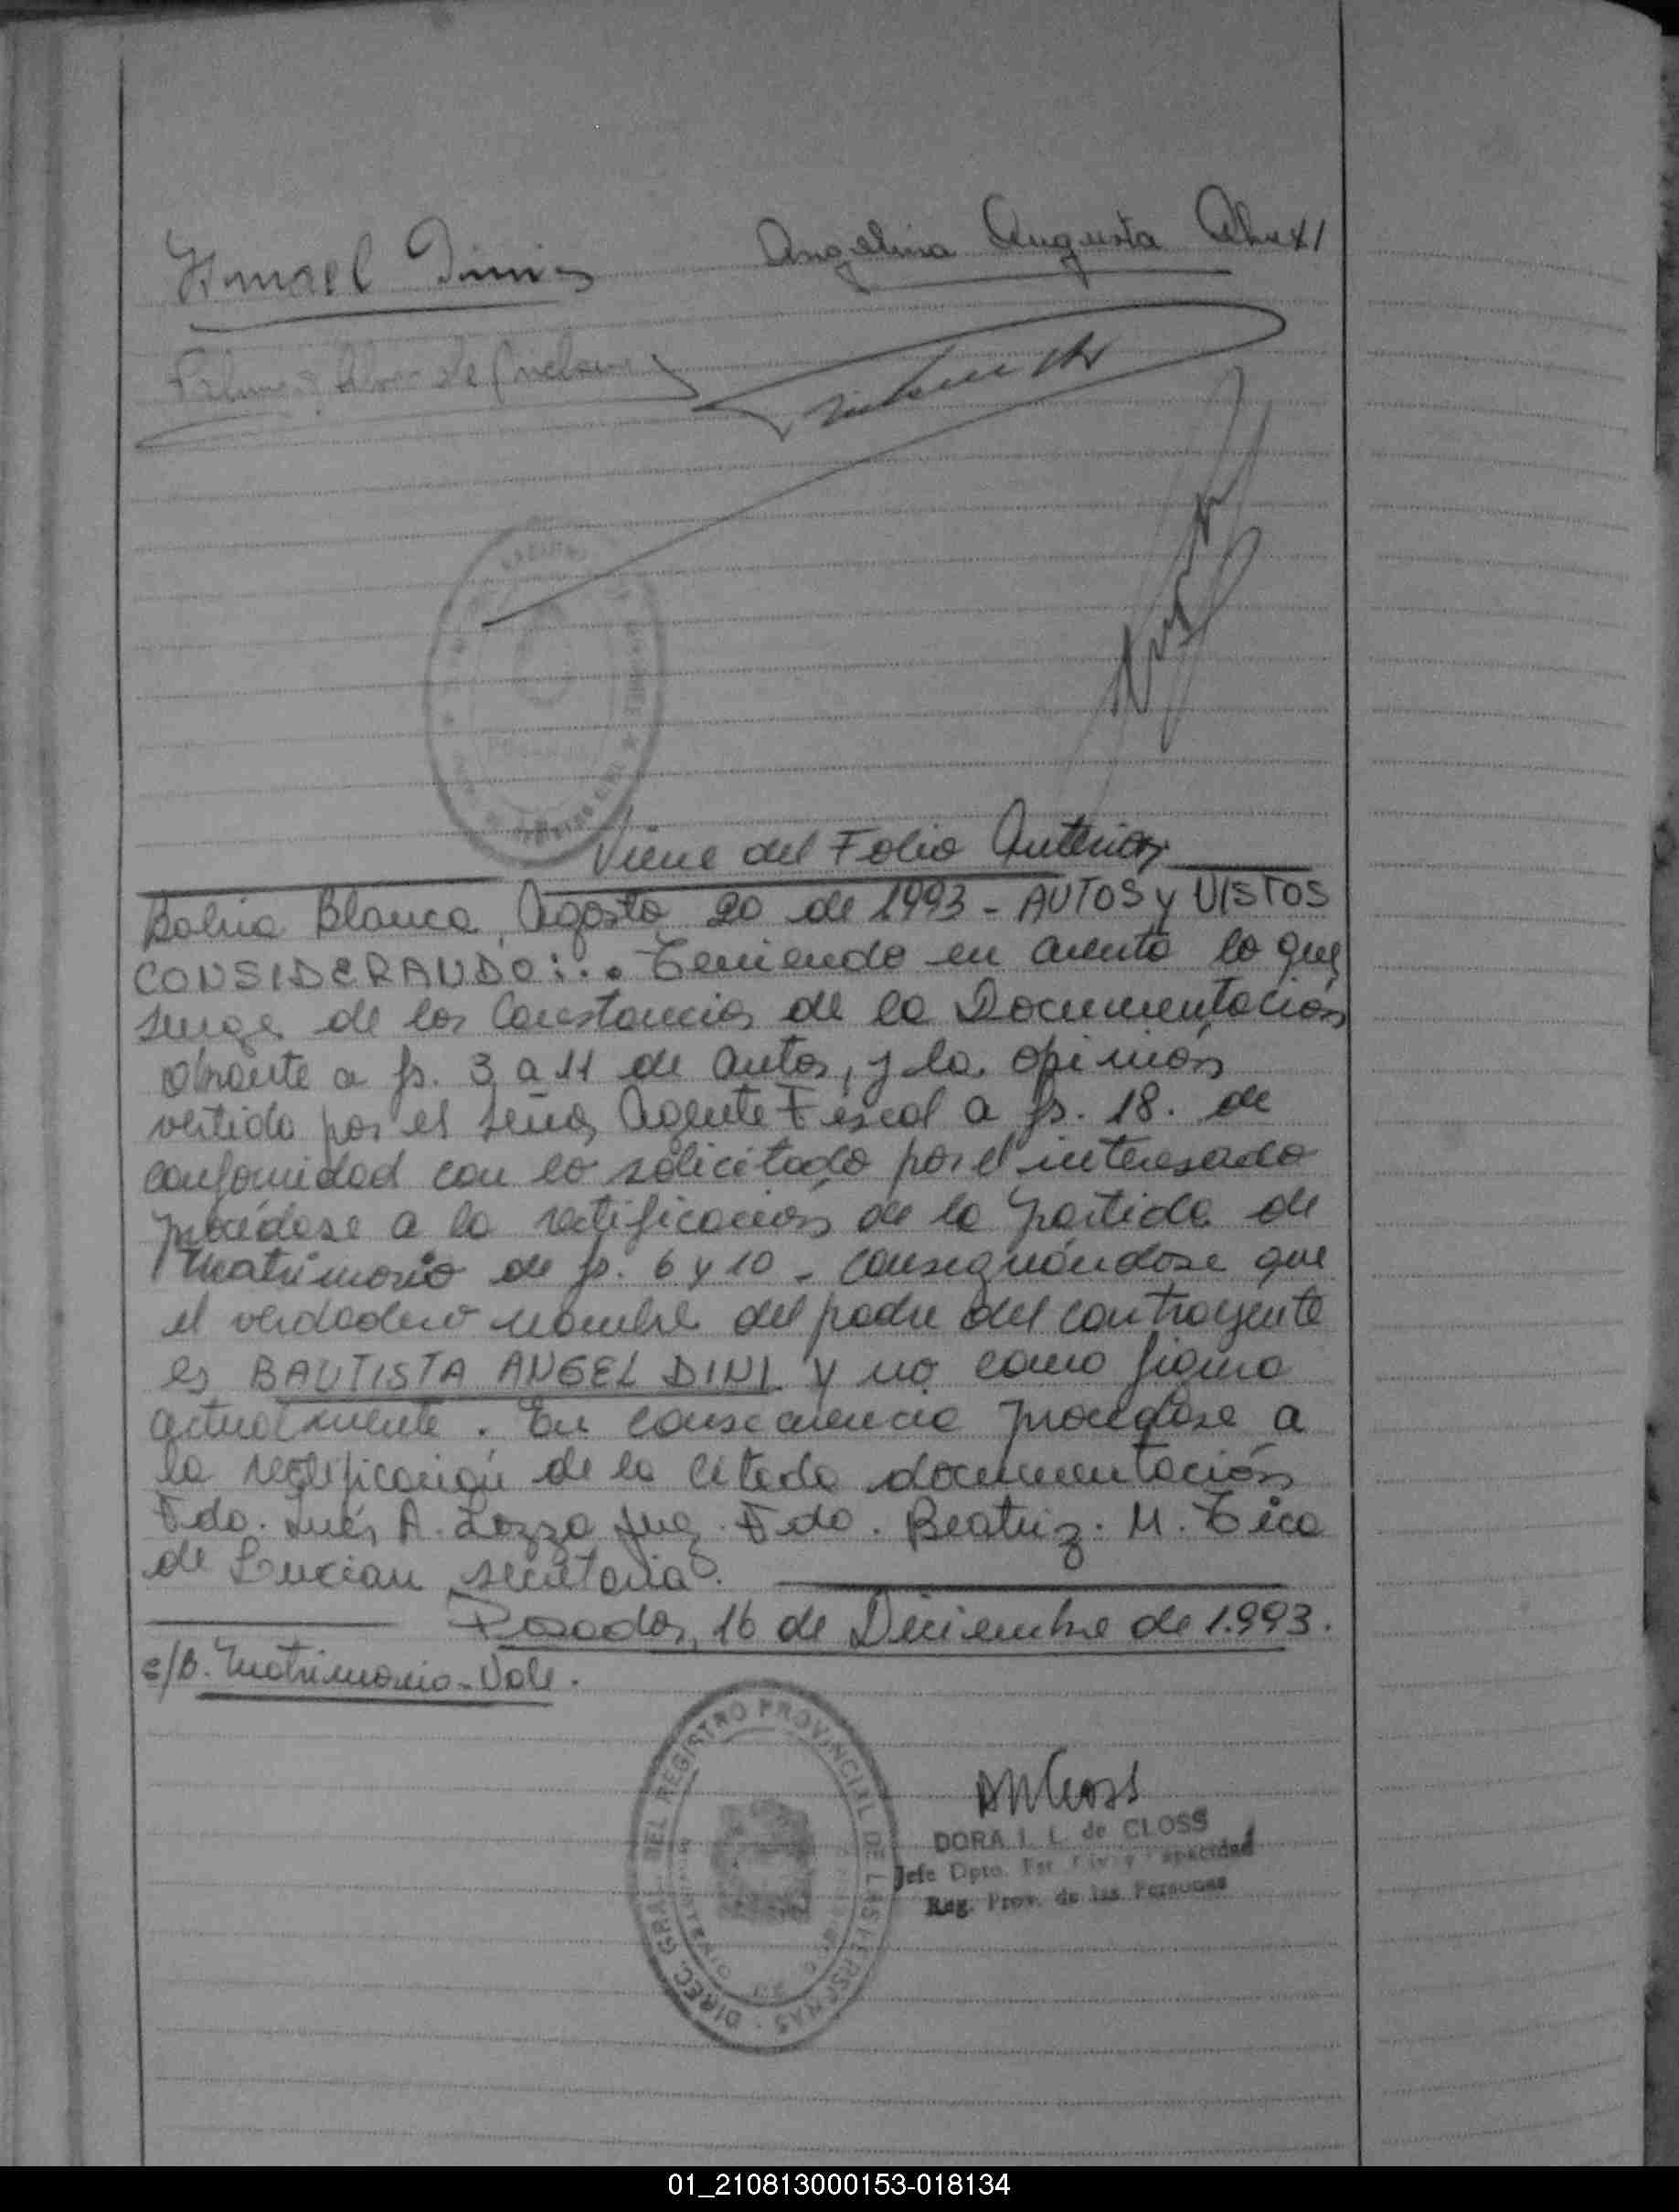 Ismael Dini
Angelina Augusta
de
Viene del Folio Anterior
Bahia Blanca, Agosto 20 de 1993 - AUTOS y VISTOS
CONSIDERANDO:.. Teniendo en cuenta lo que
surge de las Constancias de la Documentación
obrante a fs. 3 a 11 de autos, y la opinión
vertida por el señor Agente Fiscal a fs. 18. de
conformidad con lo solicitado por el interesado
procédase a la rectificación de la partida de
Matrimonio de fs. 6 y 10 - consignándose que
el verdadero nombre del padre del contrayente
es BAUTISTA ANGEL DINI y no como figura
actualmente. En consecuencia procédase a
la rectificación de la citada documentación
Fdo. Inés A. Lozza Juez. Fdo. Beatriz. M. Tica
de secretaria.
Posadas, 16 de Diciembre de 1.993.
Matrimonio - Vale.
DIREC. GRAL. DEL REGISTRO PROVINCIAL DE LAS PERSONAS
DORA I. L. de CLOSS
Jefe Dpto. Est. Civ. y Capacidad
Reg. Prov. de las Personas
01_210813000153-018134